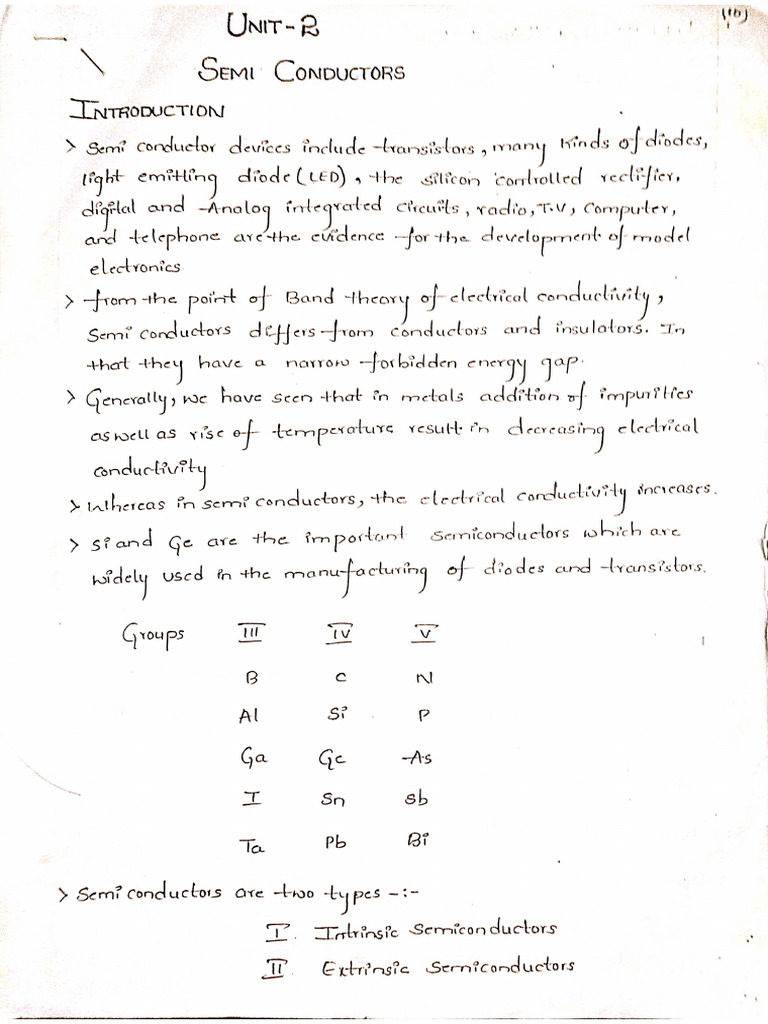 (16)
UNIT-2
SEMI CONDUCTORS
INTRODUCTION
> Semi conductor devices include transistors, many kinds of diodes,
light emitting diode (LED), the silicon controlled rectifier,
digital and Analog integrated circuits, radio, T.V, Computer,
and telephone are the evidence for the development of model
electronics
> from the point of Band theory of electrical conductivity,
Semi conductors differs from conductors and insulators. In
that they have a narrow forbidden energy gap.
> Generally, we have seen that in metals addition of impurities
as well as rise of temperature result in decreasing electrical
conductivity
> Whereas in semi conductors, the electrical conductivity increases.
> Si and Ge are the important semiconductors which are
widely used in the manufacturing of diodes and transistors.
Groups III IV V
B C N
Al Si P
Ga Ge As
I Sn Sb
Ta Pb Bi
> Semi conductors are two types -:-
I. Intrinsic Semiconductors
II. Extrinsic Semiconductors